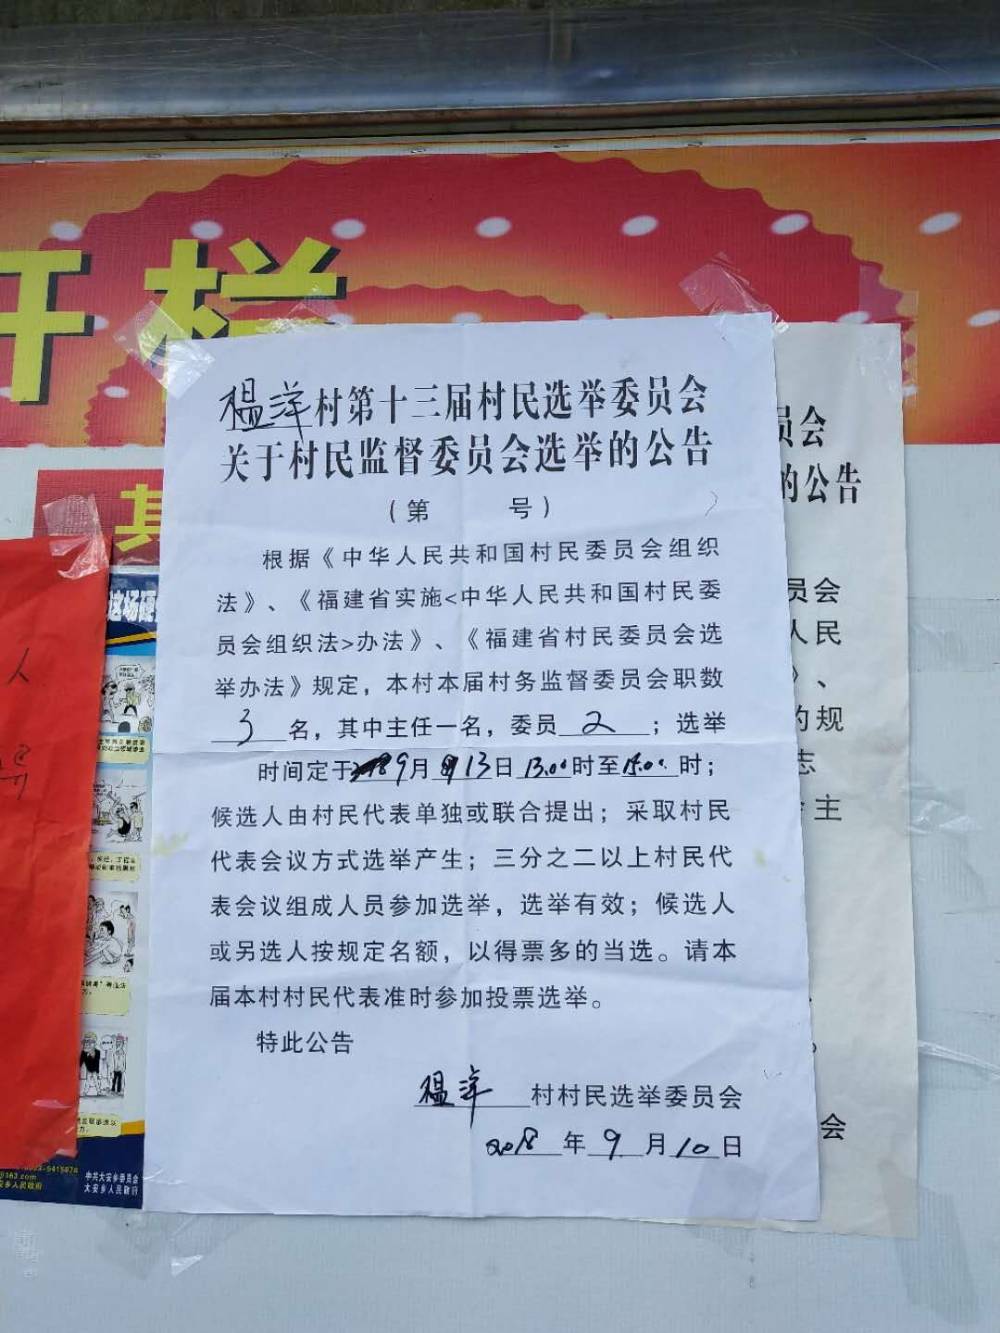 开栏
榅洋村第十三届村民选举委员会
关于村民监督委员会选举的公告
（第　　号）
根据《中华人民共和国村民委员会组织
法》、《福建省实施<中华人民共和国村民委
员会组织法>办法》、《福建省村民委员会选
举办法》规定，本村本届村务监督委员会职数
3 名，其中主任一名，委员 2 ；选举
时间定于 9月13日 13.00时至15.00时；
候选人由村民代表单独或联合提出；采取村民
代表会议方式选举产生；三分之二以上村民代
表会议组成人员参加选举，选举有效；候选人
或另选人按规定名额，以得票多的当选。请本
届本村村民代表准时参加投票选举。
特此公告
榅洋 村村民选举委员会
2018 年 9 月 10 日
员会
的公告
员会
人民
》、
的规
志
主
会
其
这场硬
人
中共大安乡委员会
大安乡人民政府